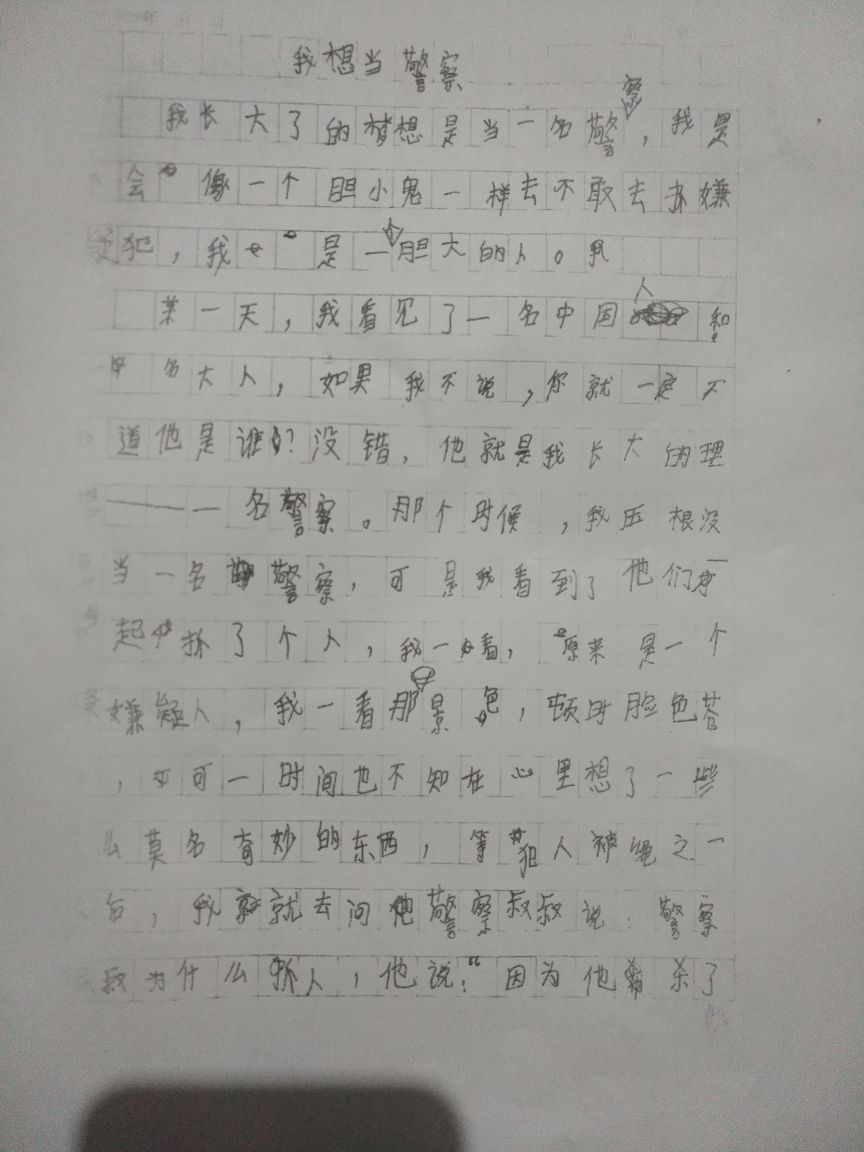 我想当警察
我长大了的梦想是当一名警察，我是
会像一个胆小鬼一样去不敢去抓嫌
犯，我是一个胆大的人。
某一天，我看见了一名中国人和
名大人，如果我不说，你就一定不
道他是谁？没错，他就是我长大的理
——一名警察。那个时候，我压根没
当一名警察，可是我看到了他们
起抓了个人，我一看，原来是一个
嫌疑人，我一看那景色，顿时脸色苍
，可一时间也不知在心里想了一些
么莫名奇妙的东西，等犯人被绳之一
后，我就去问警察叔叔说：警察
叔为什么抓人，他说：“因为他杀了